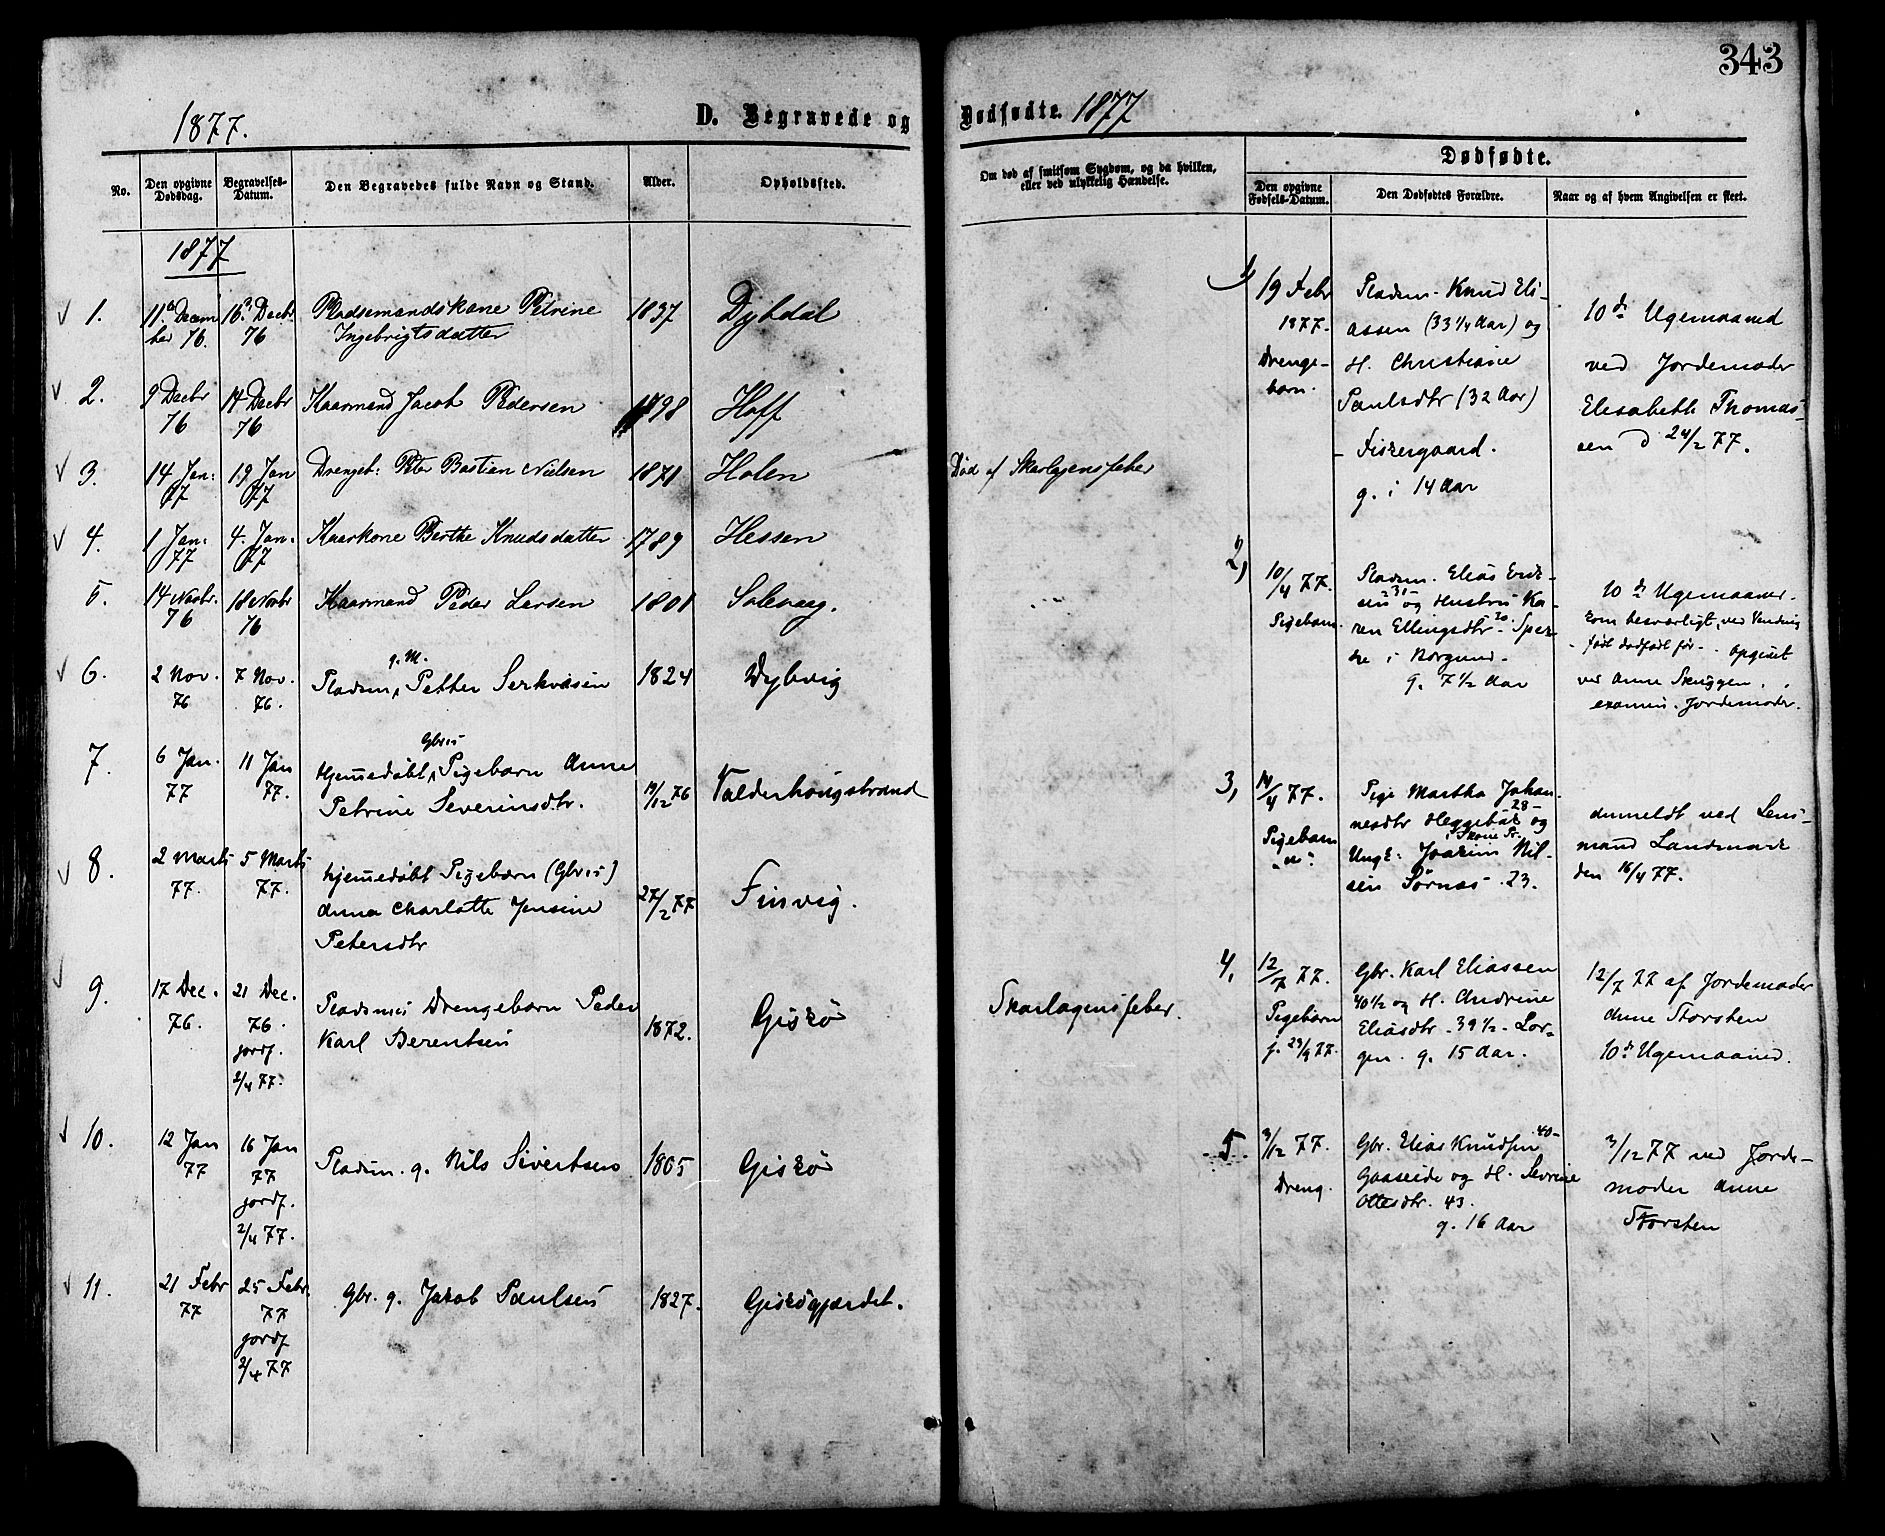 343
1877.
D. Begravede og Dødfødte. 1877
No.
Den opgivne Dødsdag.
Begravelses-Datum.
Den Begravedes fulde Navn og Stand.
Alder.
Opholdssted.
Om død af smitsom Sygdom, og da hvilken,
eller ved ulykkelig Hændelse.
Dødfødte.
Den opgivne Fødsels-Datum.
Den Dødfødtes Forældre.
Naar og af hvem Angivelsen er skeet.
1877
1. 11te Decem 16de Decbr Pladsemandskone Petrine 1837 Dybdal
ber 76. 76 Ingebrigtsdatter
2. 9 Decbr 14 Decbr Kaarmand Jacob Pedersen 1798 Hoff
76 76
3. 14 Jan: 19 Jan Drengeb: Peter Bastian Nielsen 1871 Holen Død af Skarlagensfeber
77 77
4. 1 Jan: 4. Jan. Kaarkone Berthe Knudsdatter 1789 Hessen
77 77
5. 14 Novbr. 18 Novbr Kaarmand Peder Larsen 1801
76 76
6. 2 Nov. 7 Nov. Pladsm, g. M. Petter 1824 Dybvig
76 76.
7. 6 Jan. 11 Jan Hjemmedøbt, Gbr's Pigebarn Anne
77 77. Petrine Severinsdtr. /12 76 Valderhougstrand
8. 2 Marts 5 Marts hjemmedøbt Pigebarn (Gbr's)
77. 77. Anna Charlotte Jensine 27/2 77 Finvig.
Petersdtr
9. 17 Dec. 21 Dec. Pladsm's Drengebarn Peder
76. 76. Karl Berentsen 1872. Giskø Skarlagensfeber.
jordf.
2/4 77.
10. 12 Jan 16 Jan Pladsm. g. Nils Sivertsen 1805 Giskø
77 77
jordf.
2/4 77.
11. 21 Febr 25 Febr. Gbr. g. Jakob Paulsen 1827. Giskøgjærdet.
77 77
jordf
2/4 77
1, 19 Febr Pladsm. Knud Eli-
1877. assen (33 1/4 Aar) og 10de Ugemaaned
Drenge- H. Christiane ved Jordemoder
barn. Paulsdtr (32 Aar) Elisabeth Thomas-
- Fiskergaard. sen d 24/2 77.
g. i 14 Aar
2, 10/4 77. Pladsm. Elias Erik-
sen 31 og Hustru Ka- 10de Ugemaaned.
Pigebarn. ren Ellingsdtr 30 kom besværligt, ved Vending
i Borgund. født dødfødt før - opgivet
g. 7 1/2 Aar ved Anne Skuggen,
examin. Jordemoder.
3, 14/4 77. Pige Martha Johan-
nesdtr Heggebak 28 og anmeldt ved Lens-
Pigebarn i Skoue Pr. mand Landmark
"u". Ungk: Joakim Nil- den 16/4 77.
sen Sørnes 23.
4, 12/7 77. Gbr. Karl Eliassen 12/7 77 af Jordemoder
40 1/2 og H. Andrine Anne Storsten
Pigebarn Eliasdtr 39 1/2 - Lor- 10de Ugemaaned.
j. 23/9 77. gen. g. 15 Aar.
5. 3/12 77. Gbr. Elias Knudsen 40- 3/12 77 ved Jorde-
Dreng. Gaaseide og H. Sevrine moder Anne
Ottesdtr. 43. Storsten
g. 16 Aar